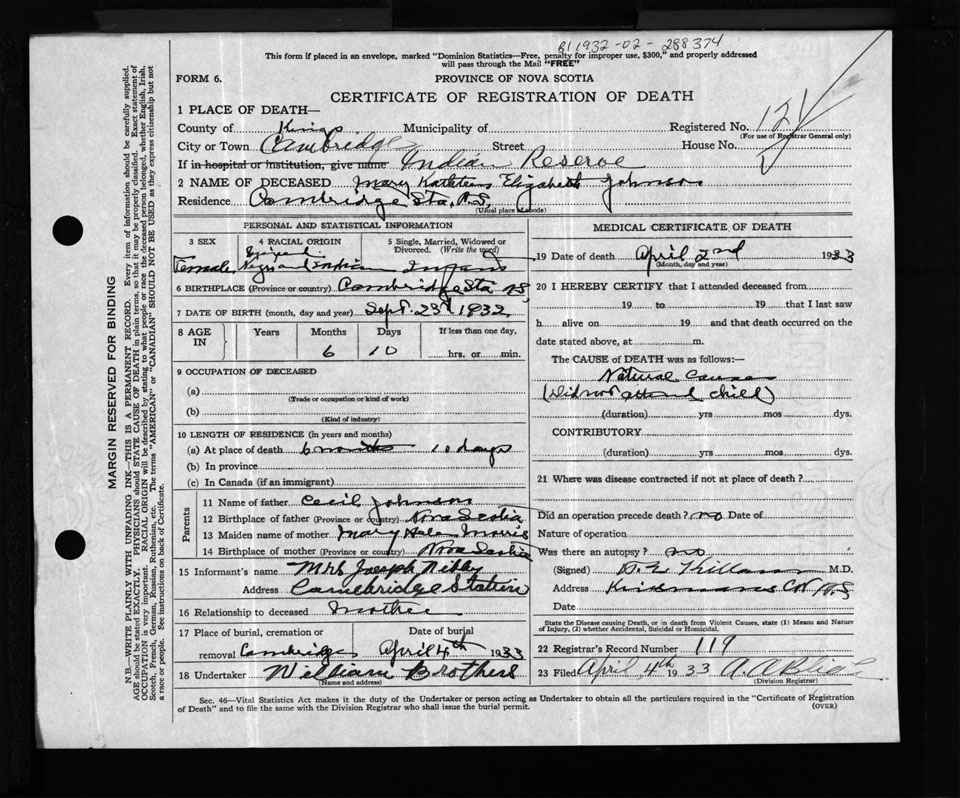 B1 1932-02-288374
This form if placed in an envelope, marked "Dominion Statistics—Free, penalty for improper use, $300," and properly addressed
will pass through the Mail "FREE"
FORM 6.
PROVINCE OF NOVA SCOTIA
CERTIFICATE OF REGISTRATION OF DEATH
1 PLACE OF DEATH—
County of Kings Municipality of Registered No. 121
(For use of Registrar General only)
City or Town Cambridge Street House No.
If in hospital or institution, give name Indian Reserve
2 NAME OF DECEASED Mary Elizabeth Johnson
Residence Cambridge Sta. N.S.
(Usual place of abode)
PERSONAL AND STATISTICAL INFORMATION
3 SEX 4 RACIAL ORIGIN 5 Single, Married, Widowed or Divorced. (Write the word)
Female Negro and Indian Infant
6 BIRTHPLACE (Province or country) Cambridge Sta. N.S.
7 DATE OF BIRTH (month, day and year) Sept. 23rd 1932
8 AGE IN Years Months Days If less than one day,
6 10 hrs. or min.
9 OCCUPATION OF DECEASED
(a)
(Trade or occupation or kind of work)
(b)
(Kind of industry)
10 LENGTH OF RESIDENCE (in years and months)
(a) At place of death 6 months 10 days
(b) In province
(c) In Canada (if an immigrant)
Parents
11 Name of father Cecil Johnson
12 Birthplace of father (Province or country) Nova Scotia
13 Maiden name of mother Mary Helen Morris
14 Birthplace of mother (Province or country) Nova Scotia
15 Informant's name Mrs Joseph
Address Cambridge Station
16 Relationship to deceased Mother
17 Place of burial, cremation or removal Cambridge Date of burial April 4th 1933
18 Undertaker William Brothers
(Name and address)
MEDICAL CERTIFICATE OF DEATH
19 Date of death April 2nd 1933
(Month, day and year)
20 I HEREBY CERTIFY that I attended deceased from
19 to 19 that I last saw
h alive on 19 and that death occurred on the
date stated above, at m.
The CAUSE of DEATH was as follows:—
Natural Causes
(Did not attend child)
(duration) yrs mos dys.
CONTRIBUTORY
(duration) yrs mos dys.
21 Where was disease contracted if not at place of death?
Did an operation precede death? no Date of
Nature of operation
Was there an autopsy? no
(Signed) M.D.
Address N.S.
Date
State the Disease causing Death, or in death from Violent Causes, state (1) Means and Nature
of Injury, (2) whether Accidental, Suicidal or Homicidal.
22 Registrar's Record Number 119
23 Filed April 4th 1933
(Division Registrar)
Sec. 46—Vital Statistics Act makes it the duty of the Undertaker or person acting as Undertaker to obtain all the particulars required in the "Certificate of Registration
of Death" and to file the same with the Division Registrar who shall issue the burial permit.
(OVER)
MARGIN RESERVED FOR BINDING
N.B.—WRITE PLAINLY WITH UNFADING INK—THIS IS A PERMANENT RECORD. Every item of information should be carefully supplied.
AGE should be stated EXACTLY. PHYSICIANS should STATE CAUSE OF DEATH in plain terms, so that it may be properly classified. Exact statement of
OCCUPATION is very important. RACIAL ORIGIN will be described by stating to what people or race the deceased person belonged, whether English, Irish,
Scotch, French, German, Russian, Ruthenian, etc. The terms "AMERICAN" or "CANADIAN" SHOULD NOT BE USED as they express citizenship but not
a race or people. See instructions on back of Certificate.